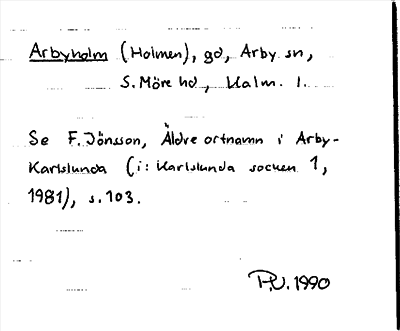 Arbyholm (Holmen), gd, Arby sn,
S. Möre hd, Kalm. l.
Se F. Jönsson, Äldre ortnamn i Arby-
Karlslunda (i: Karlslunda socken 1,
1981), s. 103.
P.U. 1990